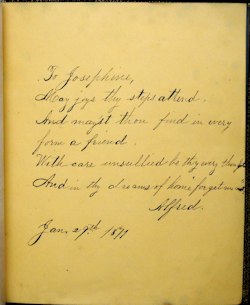 To Josephine,
May joys thy steps attend.
And mayst thou find in every
form a friend.
With care unsullied be thy every thought
And in thy dreams of home forget me not
Alfred.
Jan. 29th 1871